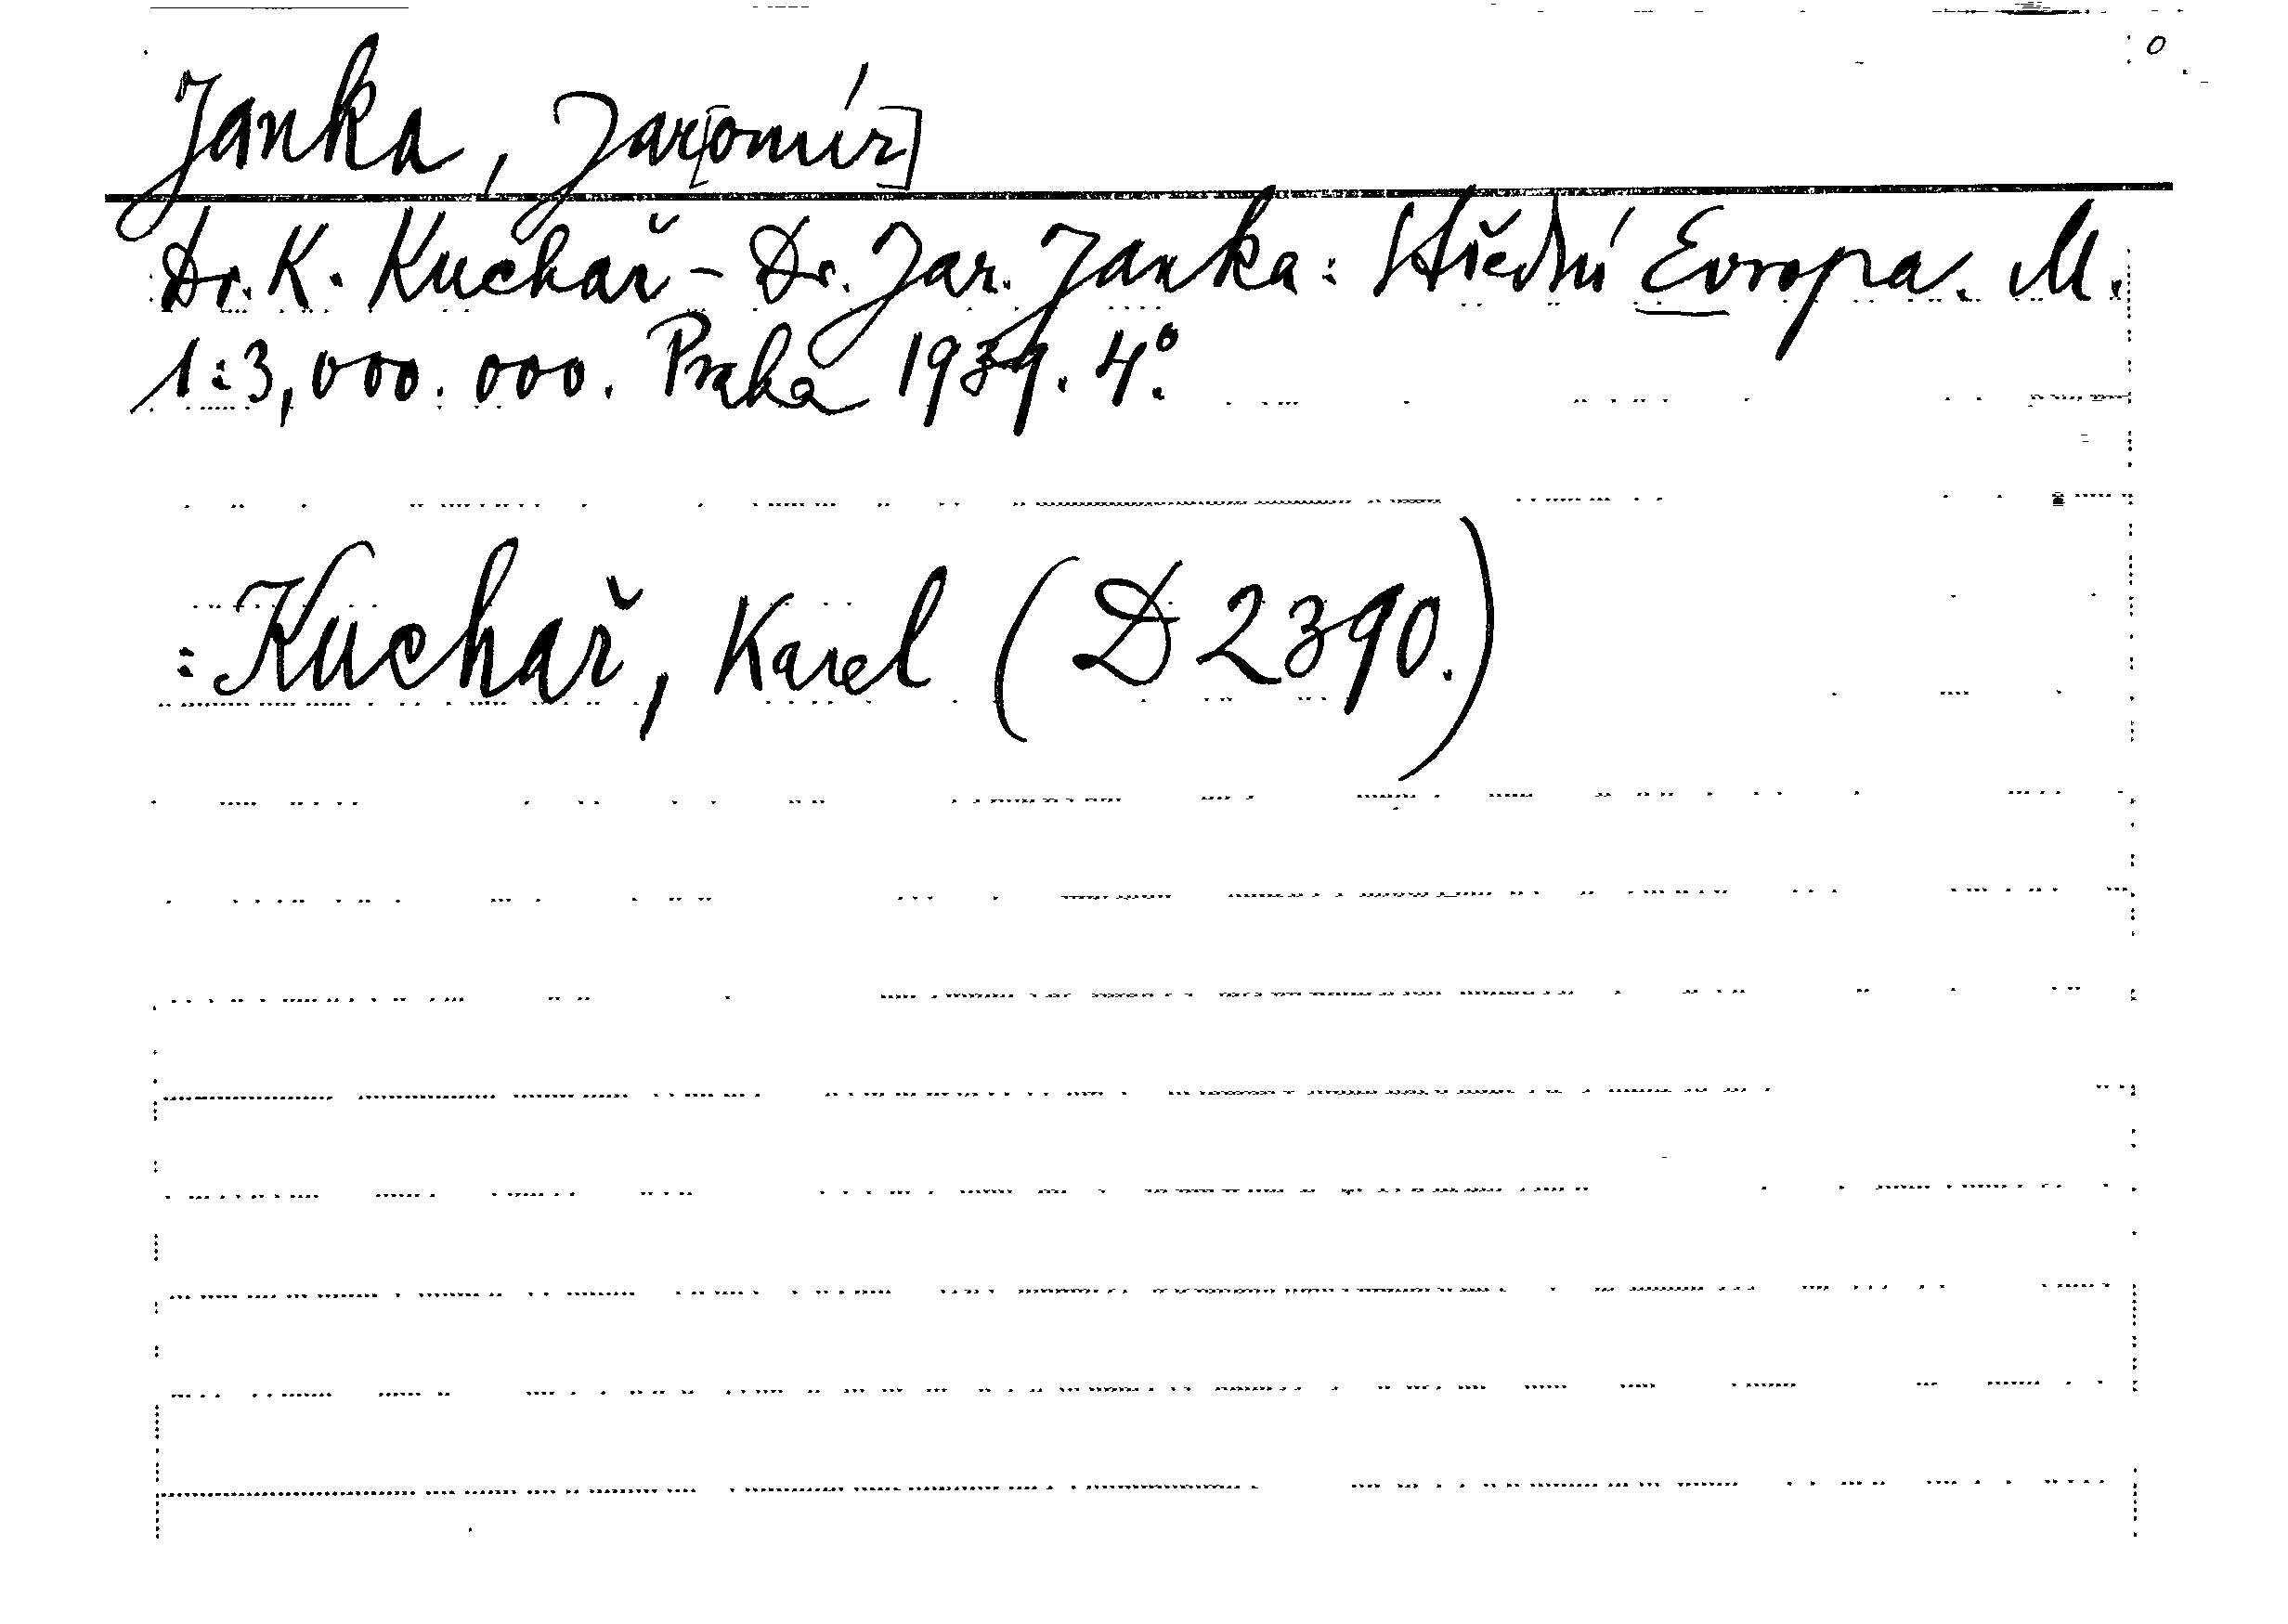 Janka, Jar[omír]
Dr. K. Kuchař - Dr. Jar. Janka: Střední Evropa. M.
1:3,000.000. Praha 1939. 4°.
: Kuchař, Karel (D 2390.)